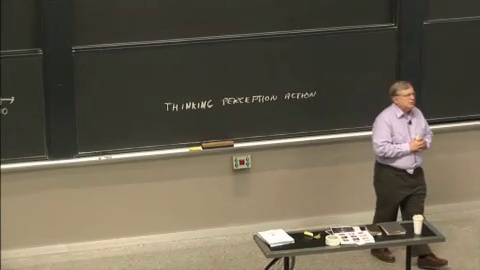 THINKING PERCEPTION ACTION